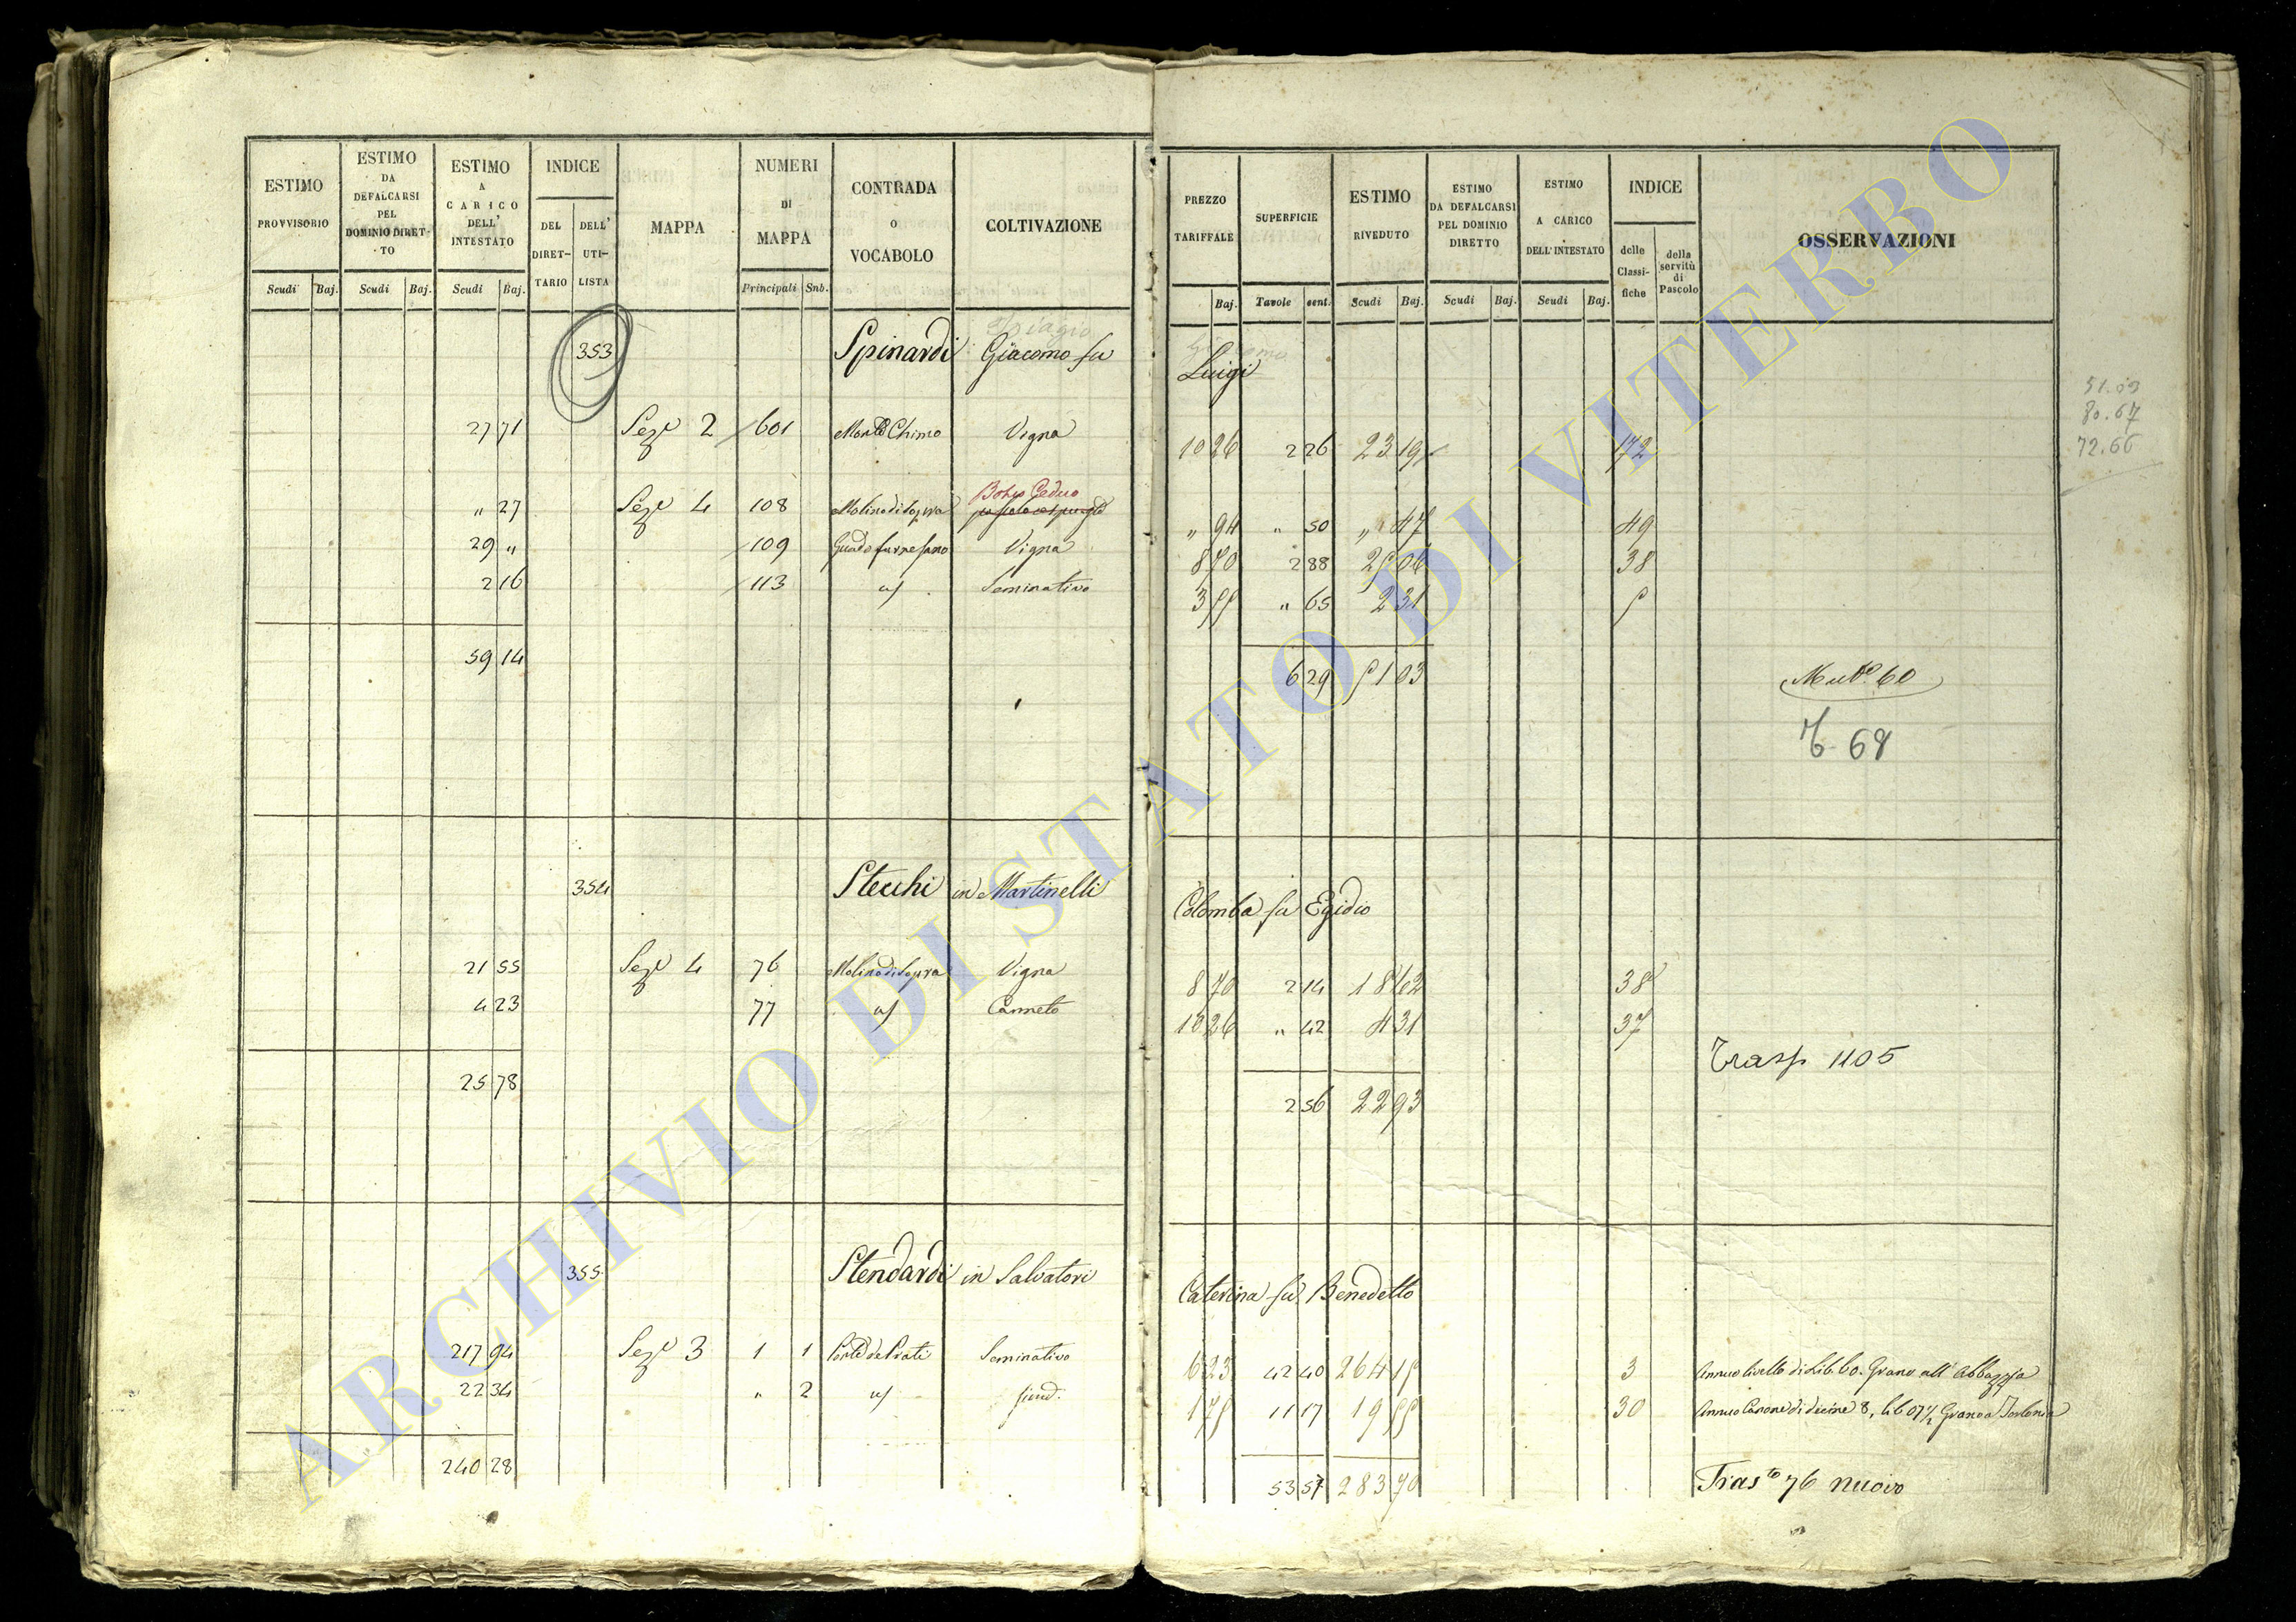 ESTIMO PROVVISORIO Scudi Baj.
ESTIMO DA DEFALCARSI PEL DOMINIO DIRETTO Scudi Baj.
ESTIMO A CARICO DELL' INTESTATO Scudi Baj.
INDICE DEL DIRETTARIO DELL' UTILISTA
MAPPA
NUMERI DI MAPPA Principali Snb.
CONTRADA O VOCABOLO
COLTIVAZIONE
PREZZO TARIFFALE Baj.
SUPERFICIE Tavole cent.
ESTIMO RIVEDUTO Scudi Baj.
ESTIMO DA DEFALCARSI PEL DOMINIO DIRETTO Scudi Baj.
ESTIMO A CARICO DELL'INTESTATO Scudi Baj.
INDICE delle Classifiche della servitù di Pascolo
OSSERVAZIONI
353 Spinardi Giacomo fu Luigi
51.03
80.67
72.66
27 71 Seze 2 601 Monte Chimo Vigna 10 26 2 26 23 19 172
Bosco Ceduo
" 27 Seze 4 108 Molino di Sopra " 94 " 50 " 47 49
29 " 109 Guado farnesano Vigna 8 70 2 88 25 06 38
2 16 113 Seminativo 3 55 " 65 2 31 5
59 14 6 29 51 03 60
68
354 Stecchi in Martinelli Colomba fu Egidio
21 55 Seze 4 76 Molino di Sopra Vigna 8 70 2 14 18 62 38
4 23 77 Canneto 10 26 " 42 4 31 37
25 78 2 56 22 93 Trasp 1105
355 Stendardi in Salvatori Caterina fu Benedetto
217 94 Seze 3 1 1 Ponte de Prati Seminativo 6 23 42 40 264 15 3 Annuo livello di Lib. 60. Grano all' Abbazzia
22 34 " 2 1 75 11 17 19 55 30 Annuo Canone di decine 8, lib 07 1/2 Grano a Torlonia
240 28 53 57 283 70 Trasto 76 nuovo
ARCHIVIO DI STATO DI VITERBO